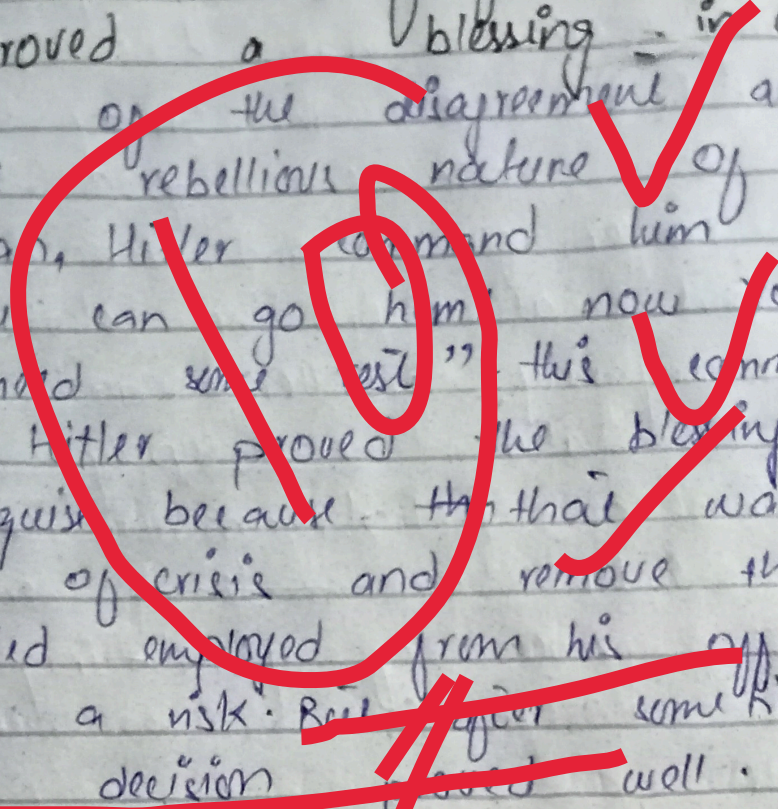 roved a blessing - in
of the disagreement a
rebellious nature of
an, Hitler command him
can go home now
some rest" this
Hitler proved the blessing
because that
of crisis and remove th
employed from his off
a risk. But after some
decision proved well.